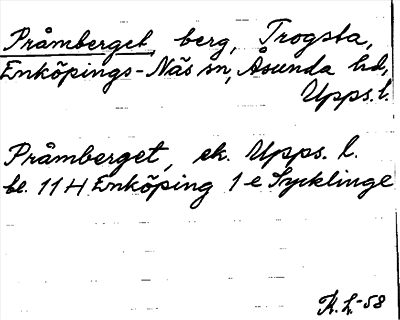 Pråmberget, berg, Trogsta,
Enköpings-Näs sn, Åsunda hd,
Upps. l.
Pråmberget, ek. Upps. l.
bl. 11H Enköping 1e Lycklinge
K.L-58